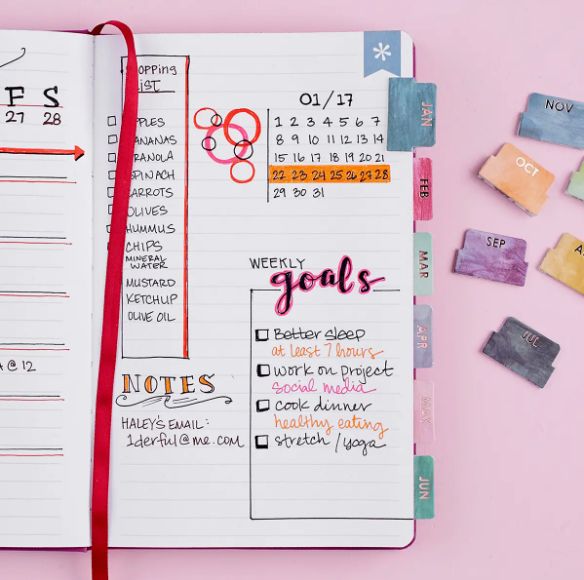 F S
27 28
@ 12
Shopping
List
APPLES
BANANAS
GRANOLA
SPINACH
CARROTS
OLIVES
HUMMUS
CHIPS
MINERAL
WATER
MUSTARD
KETCHUP
OLIVE OIL
NOTES
HALEY'S EMAIL:
1derful@me.com
*
01/17
1 2 3 4 5 6 7
8 9 10 11 12 13 14
15 16 17 18 19 20 21
22 23 24 25 26 27 28
29 30 31
WEEKLY
goals
Better sleep
at least 7 hours
work on project
social media
cook dinner
healthy eating
stretch / yoga
JAN
FEB
MAR
APR
MAY
JUN
NOV
OCT
SEP
JUL